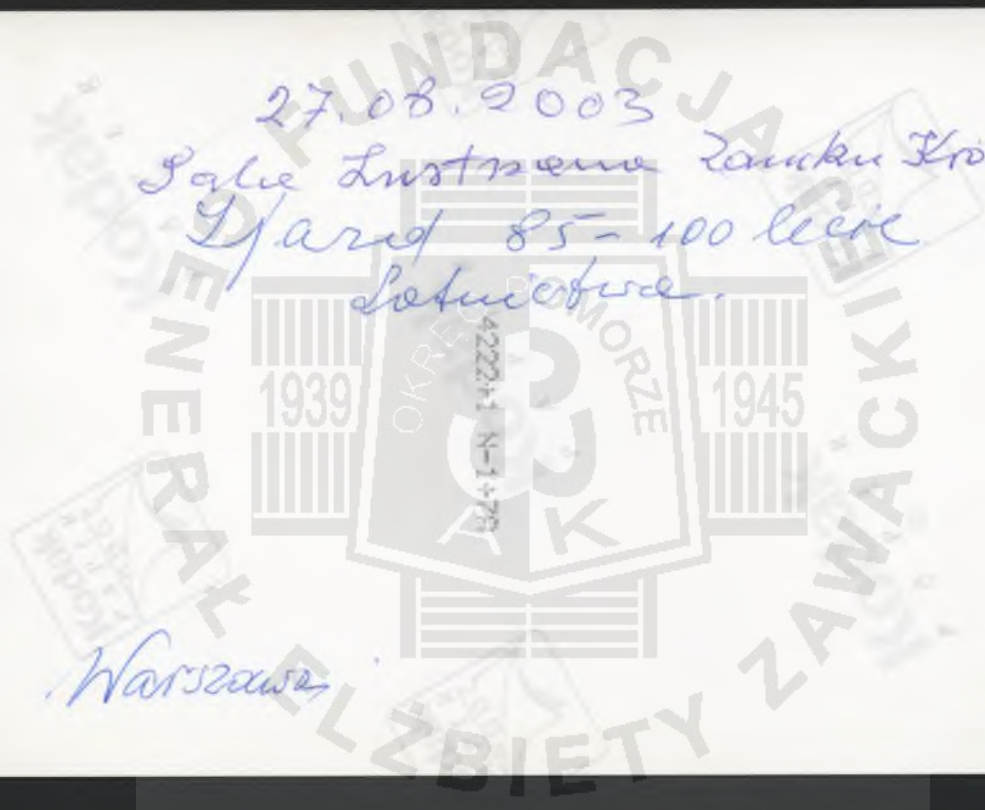 27.08.2003
Sala Lustrzana Zamku Kró
Zjazd 85-100 lecie
Lotnictwa.
4222+1 N-1+79
Warszawa
FUNDACJA GENERAŁ ELŻBIETY ZAWACKIEJ
OKRĘG POMORZE
1939 1945
AK
Kodak
Kodak